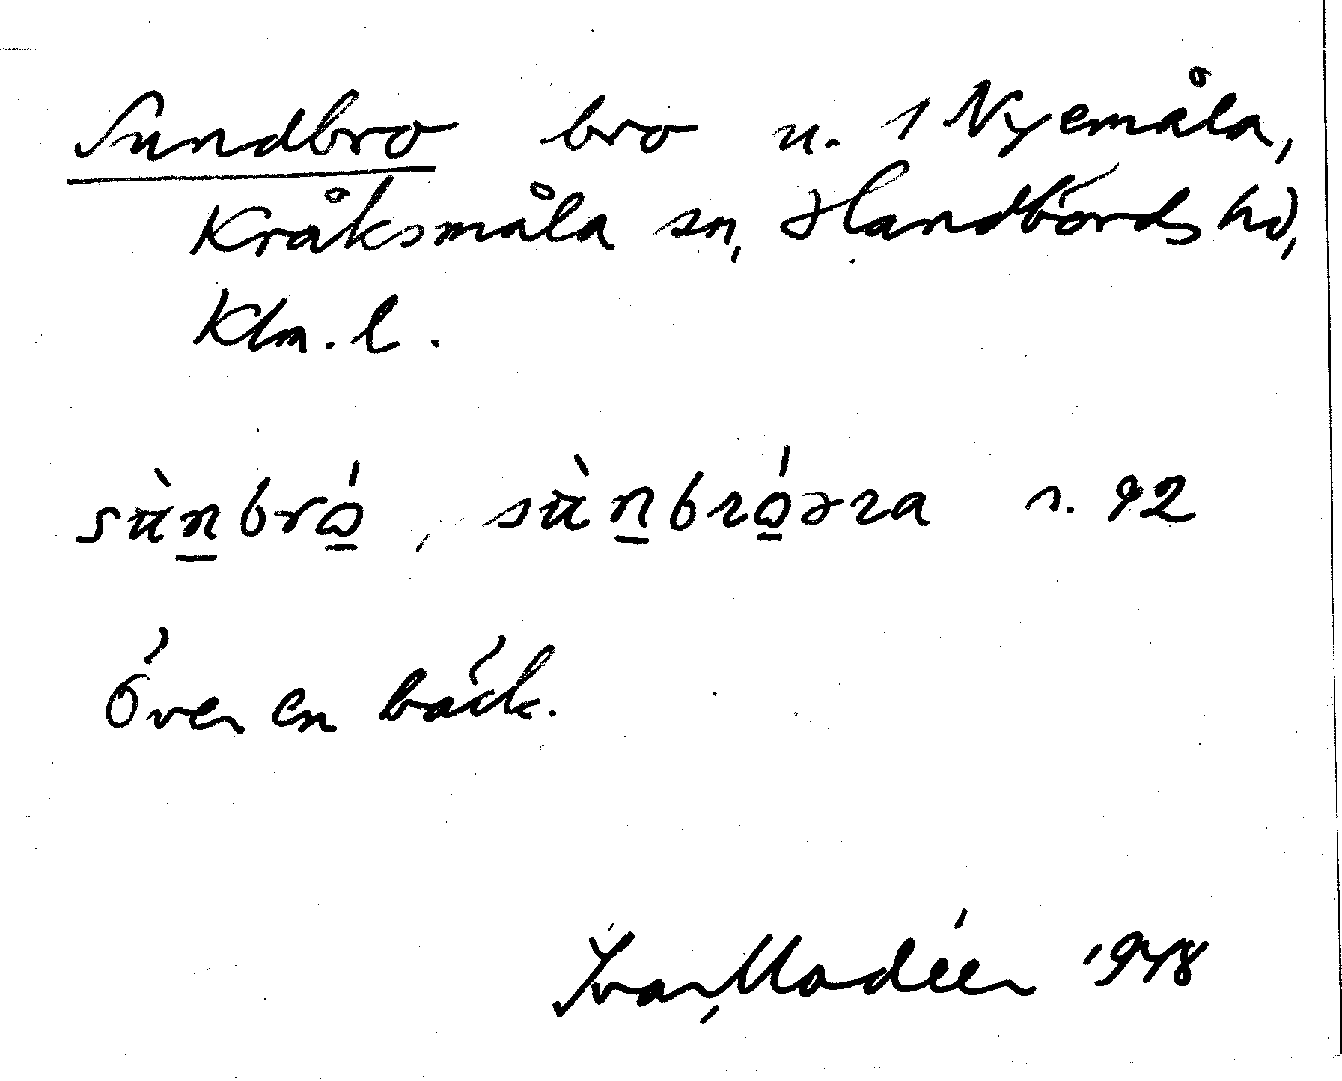 Sundbro bro u. 1 Nyemåla,
Kråksmåla sn, Handbörds hd,
Klm. l.
sùn̲bró̲, sùn̲bró̲ɘra s. 92
Över en bäck.
Ivar Modéer 1948